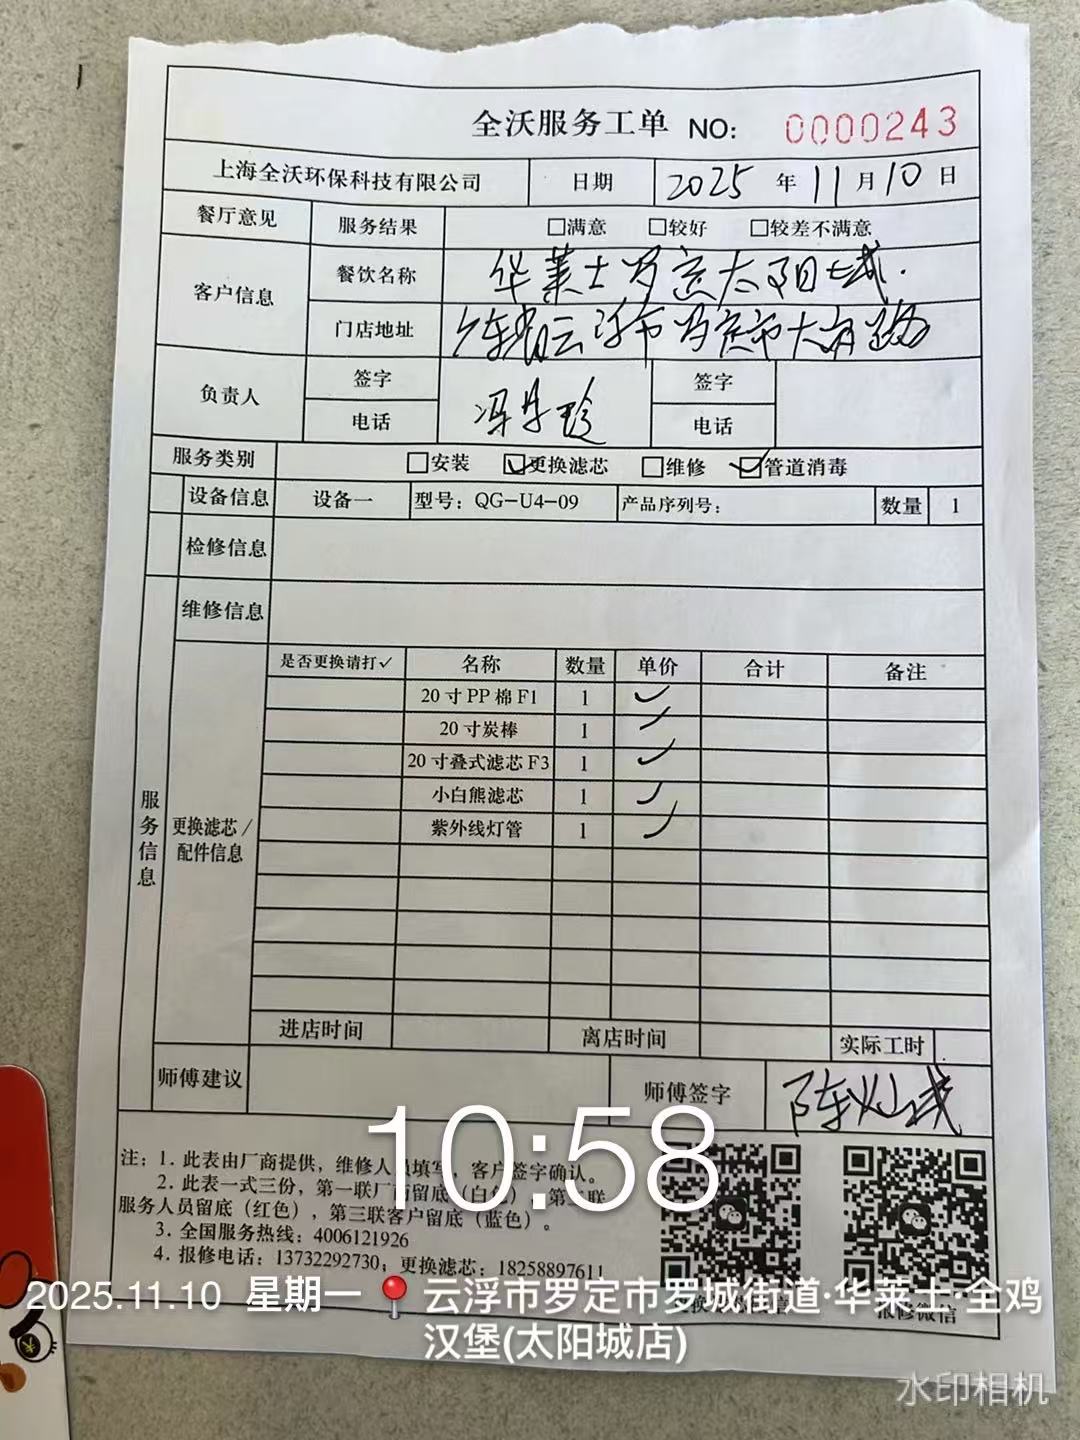 全沃服务工单 NO: 0000243
上海全沃环保科技有限公司 日期 2025 年 11 月 10 日
餐厅意见 服务结果 □满意 □较好 □较差不满意
客户信息 餐饮名称 华莱士罗定太阳城.
门店地址 广东省云浮市罗定市大岗路
负责人 签字 冯 签字
电话 电话
服务类别 □安装 ☑更换滤芯 □维修 ☑管道消毒
设备信息 设备一 型号: QG-U4-09 产品序列号: 数量 1
检修信息
维修信息
是否更换请打✓ 名称 数量 单价 合计 备注
20寸PP棉F1 1 ✓
20寸炭棒 1 ✓
20寸叠式滤芯F3 1 ✓
小白熊滤芯 1 ✓
紫外线灯管 1 ✓
服务信息
更换滤芯/
配件信息
进店时间 离店时间 实际工时
师傅建议 师傅签字 陈
10:58
注: 1. 此表由厂商提供, 维修人员填写, 客户签字确认。
2. 此表一式三份, 第一联厂商留底(白色), 第二联
服务人员留底(红色), 第三联客户留底(蓝色)。
3. 全国服务热线: 4006121926
4. 报修电话: 13732292730; 更换滤芯: 18258897611
报修微信
2025.11.10 星期一 云浮市罗定市罗城街道·华莱士·全鸡
汉堡(太阳城店)
水印相机